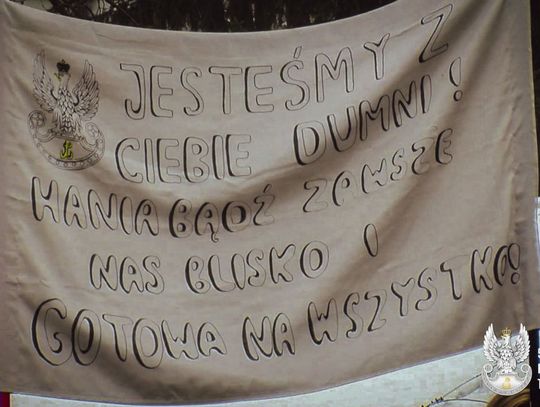 JESTEŚMY Z
CIEBIE DUMNI!
HANIA BĄDŹ ZAWSZE
NAS BLISKO I
GOTOWA NA WSZYSTKO!